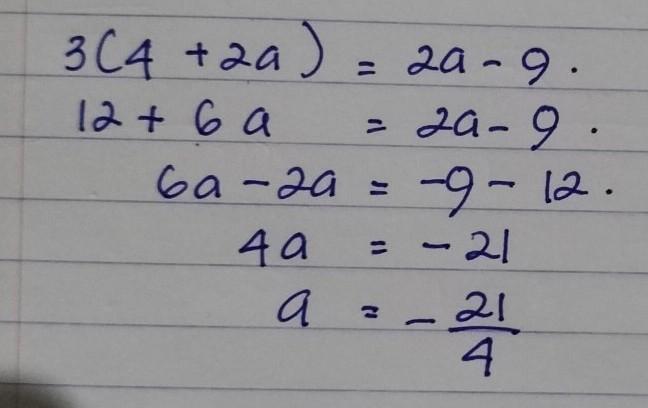 3(4 + 2a) = 2a - 9.
12 + 6a = 2a - 9.
6a - 2a = -9 - 12.
4a = -21
a = -21/4